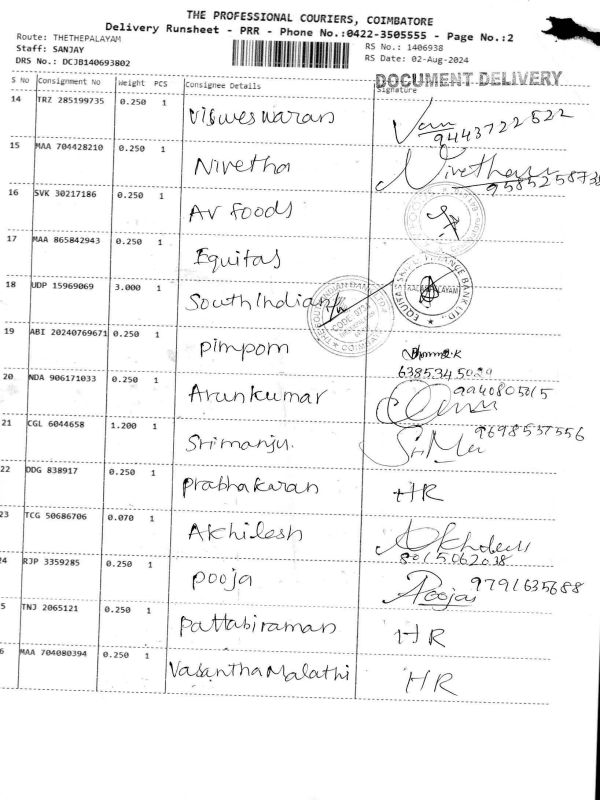 THE PROFESSIONAL COURIERS, COIMBATORE
Delivery Runsheet - PRR - Phone No.:0422-3505555 - Page No.:2
Route: THETHEPALAYAM
RS No.: 1406938
Staff: SANJAY
RS Date: 02-Aug-2024
DRS No.: DCJB140693802
DOCUMENT DELIVERY
S No Consignment No Weight PCS Consignee Details Signature
14 TRZ 285199735 0.250 1 Visweswaran
9443722522
15 MAA 704428210 0.250 1 Nivetha Nivetha
16 SVK 30217186 0.250 1 AV foods
17 MAA 865842943 0.250 1 Equitas
18 UDP 15969069 3.000 1 South Indian
19 ABI 20240769671 0.250 1 pimpom
20 NDA 906171033 0.250 1 Arunkumar
21 CGL 6044658 1.200 1 Srimanju. 9698537556
22 DDG 838917 0.250 1 prabhakaran HR
23 TCG 50686706 0.070 1 Akhilesh
8015062038
24 RJP 3359285 0.250 1 pooja Pooja 9791635688
5 TNJ 2065121 0.250 1 pattabiraman HR
6 MAA 704080394 0.250 1 Vasantha Malathi HR